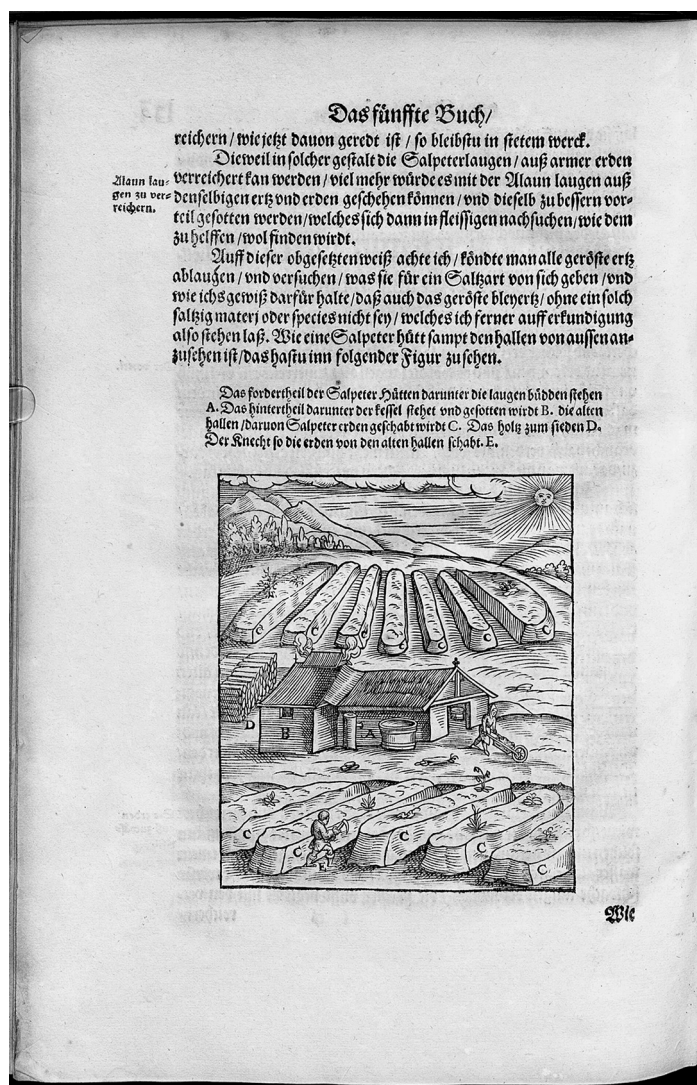 Das fünffte Buch/
reichern / wie jetzt dauon geredt ist / so bleibstu in stetem werck.
Dieweil in solcher gestalt die Salpeterlaugen / auß armer erden
Alaun lau-
gen zu ver-
reichern.
verreichert kan werden / viel mehr würde es mit der Alaun laugen auß
denselbigen ertz vnd erden geschehen können / vnd dieselb zu bessern vor-
teil gesotten werden / welches sich dann in fleissigen nachsuchen / wie dem
zu helffen / wol finden wirdt.
Auff dieser obgesetzten weiß achte ich / köndte man alle geröste ertz
ablaugen / vnd versuchen / was sie für ein Saltzart von sich geben / vnd
wie ichs gewiß darfür halte / daß auch das geröste bleyertz / ohne ein solch
saltzig materj oder species nicht sey / welches ich ferner auff erkundigung
also stehen laß. Wie eine Salpeter hütt sampt den hallen von aussen an-
zusehen ist / das hastu inn folgender Figur zu sehen.
Das fordertheil der Salpeter Hütten darunter die laugen büdden stehen
A. Das hintertheil darunter der kessel stehet vnd gesotten wirdt B. die alten
hallen / daruon Salpeter erden geschabt wirdt C. Das holtz zum sieden D.
Der Knecht so die erden von den alten hallen schabt. E.
C C C C C C C
D B A
C C C C C
E
Wie